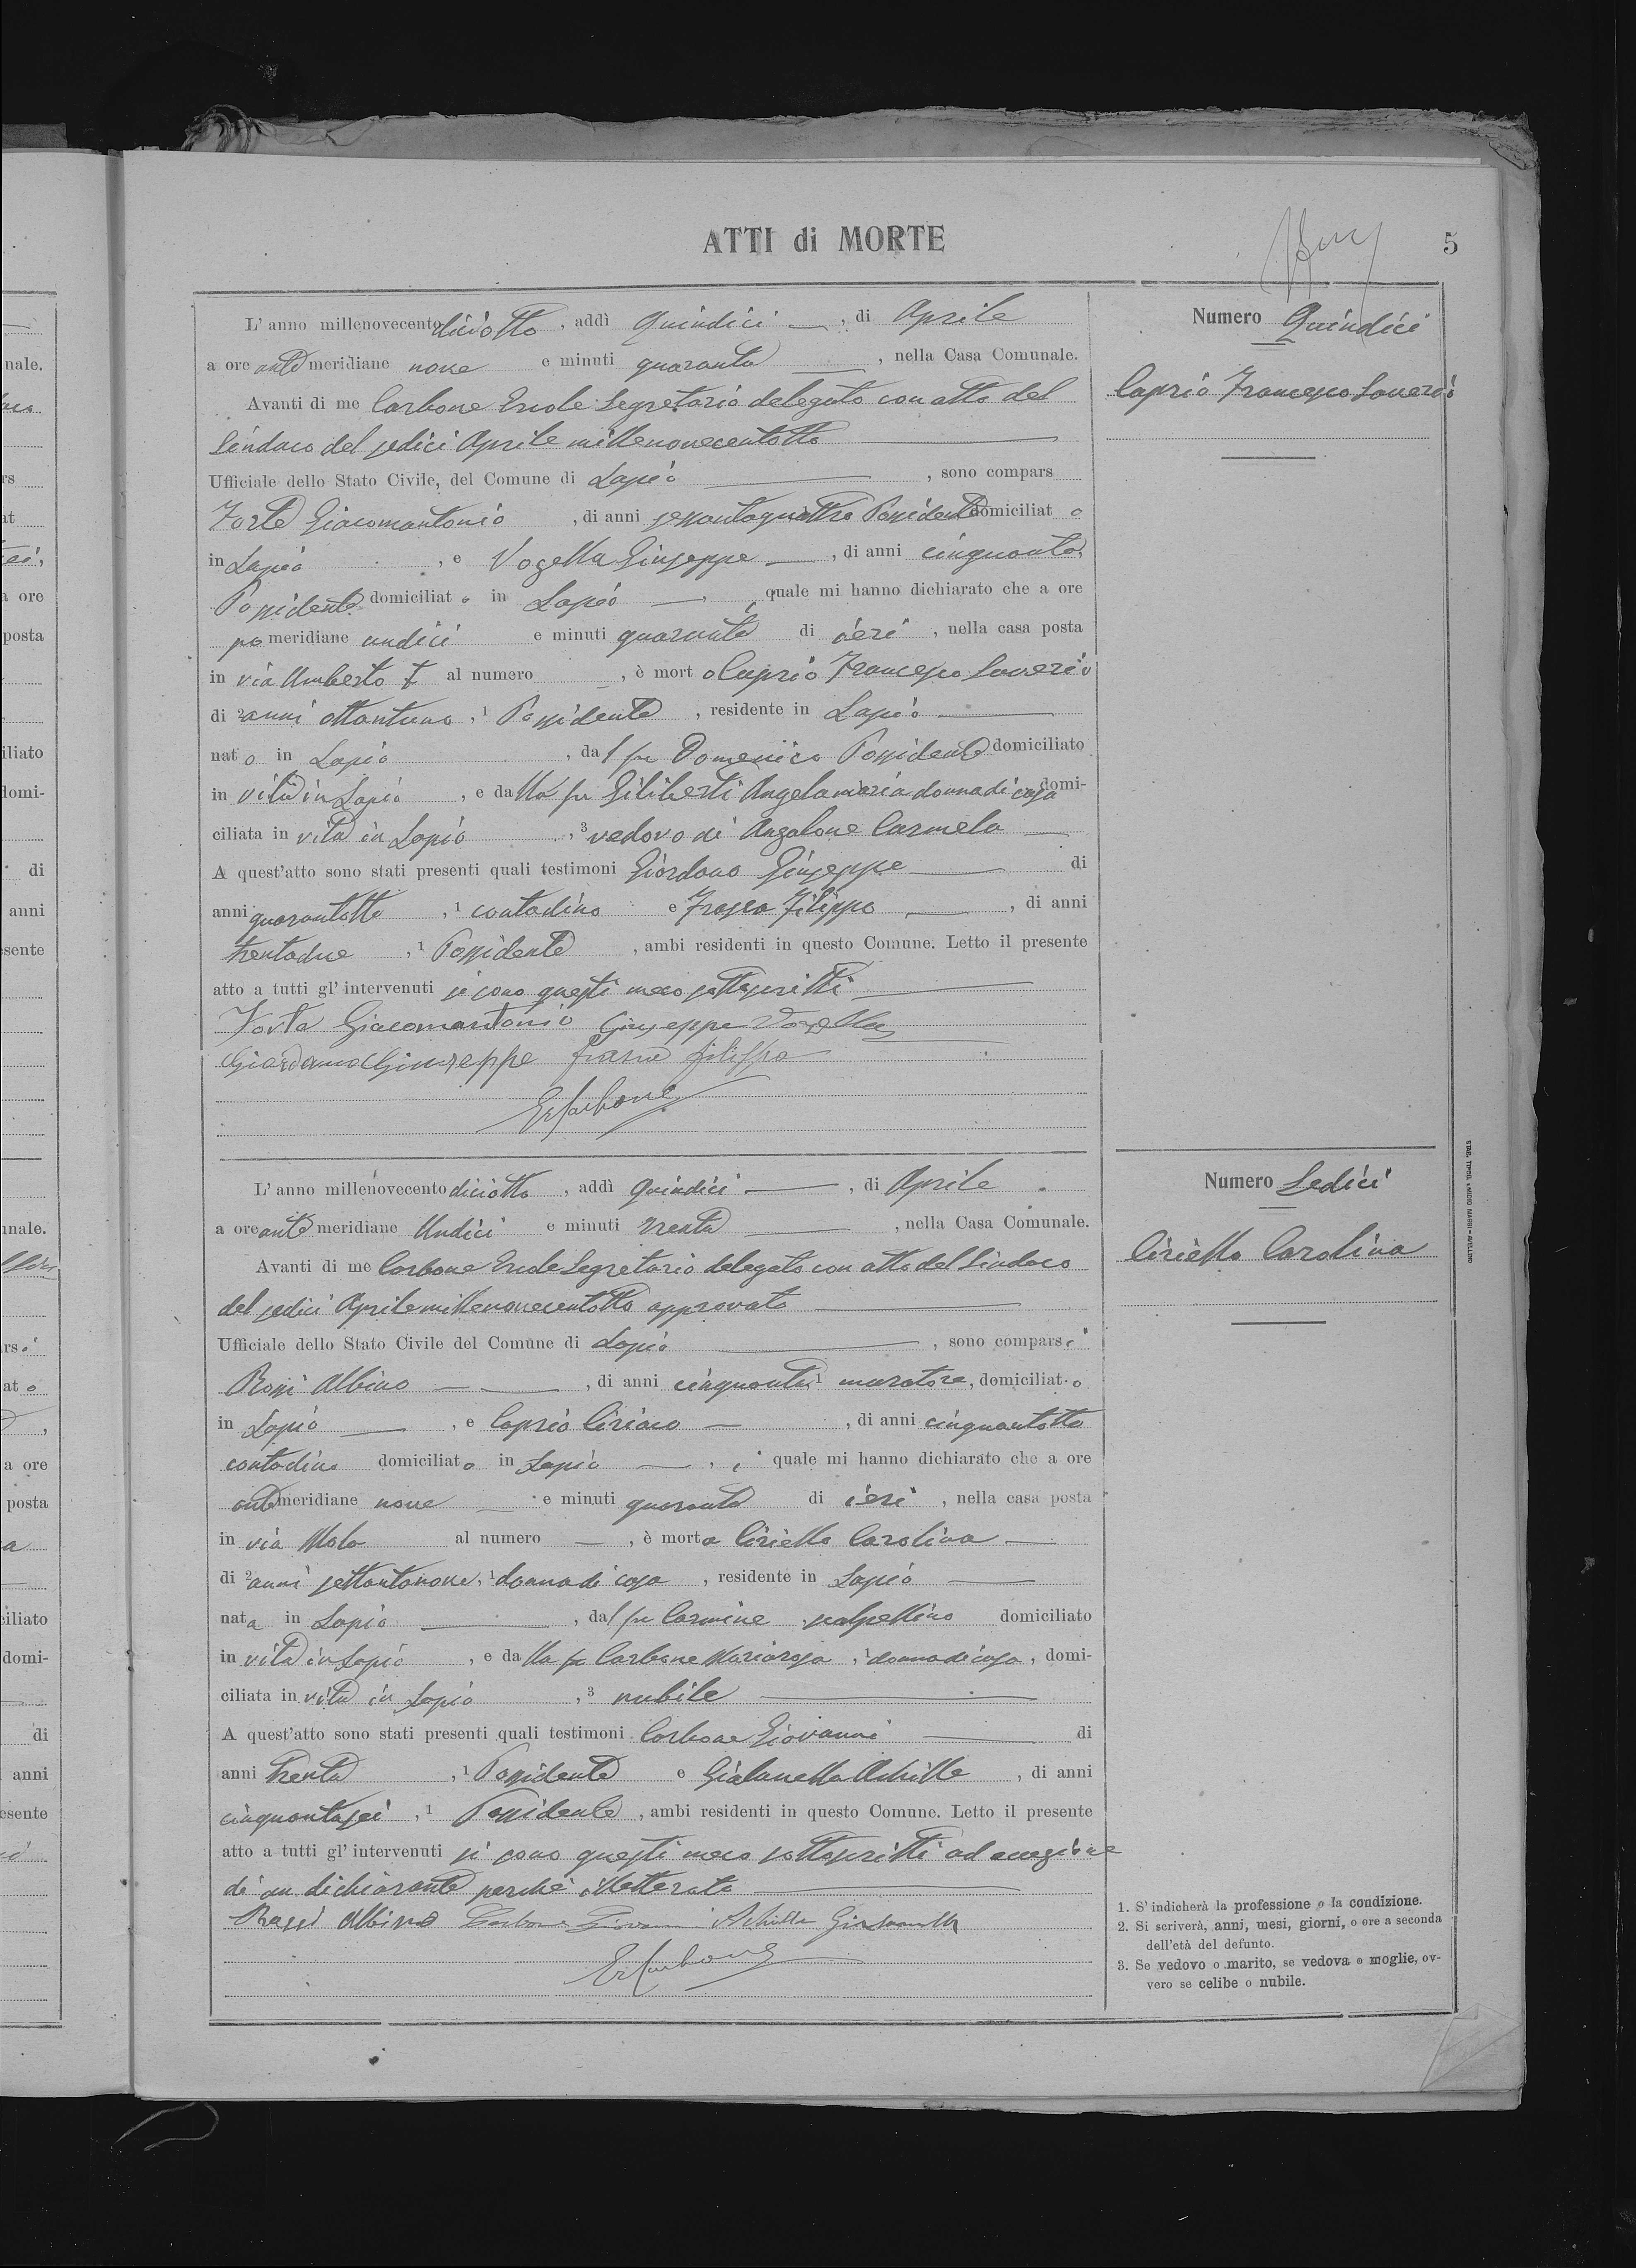 ATTI di MORTE
5
L' anno millenovecento diciotto, addì Quindici, di Aprile
a ore antemeridiane nove e minuti quaranta, nella Casa Comunale.
Avanti di me Carbone Ercole Segretario delegato con atto del
Sindaco del sedici Aprile millenovecentotto
Ufficiale dello Stato Civile, del Comune di Lapio, sono compars
Forte Giacomantonio, di anni sessantaquattro Possidente domiciliato
in Lapio, e Vogella Giuseppe, di anni cinquanta,
Possidente domiciliato in Lapio, i quale mi hanno dichiarato che a ore
pomeridiane undici e minuti quaranta di ieri, nella casa posta
in via Umberto I al numero, è morto Caprio Francesco Saverio
di 2 anni ottantuno, 1 Possidente, residente in Lapio
nato in Lapio, dal fu Domenico Possidente domiciliato
in vita in Lapio, e dalla fu Giliberti Angelamaria donna di casa domi-
ciliata in vita in Lapio, 3 vedovo di Anzalone Carmela
A quest'atto sono stati presenti quali testimoni Giordano Giuseppe di
anni quarantotto, 1 contadino e Frasca Filippo, di anni
trentadue, 1 Possidente, ambi residenti in questo Comune. Letto il presente
atto a tutti gl' intervenuti si sono questi meco sottoscritti
Forte Giacomantonio Giuseppe Vogella
Giordano Giuseppe Filippo
E. Carbone
Numero Quindici
Caprio Francesco Saverio
L' anno millenovecento diciotto, addì Quindici, di Aprile
a ore antemeridiane Undici e minuti trenta, nella Casa Comunale.
Avanti di me Carbone Ercole Segretario delegato con atto del Sindaco
del sedici Aprile millenovecentotto approvato
Ufficiale dello Stato Civile del Comune di Lapio, sono comparsi
Rossi Albino, di anni cinquanta, 1 muratore, domiciliato
in Lapio, e Caprio Ciriaco, di anni cinquantotto
contadino domiciliato in Lapio, i quale mi hanno dichiarato che a ore
antemeridiane nove e minuti quaranta di ieri, nella casa posta
in via Molo al numero, è morta Ciriello Carolina
di 2 anni settantanove, 1 donna di casa, residente in Lapio
nata in Lapio, dal fu Carmine scalpellino domiciliato
in vita in Lapio, e dalla fu Carbone Mariarosa, 1 donna di casa, domi-
ciliata in vita in Lapio, 3 nubile
A quest'atto sono stati presenti quali testimoni Carbone Giovanni di
anni trenta, 1 Possidente e Gialanella Achille, di anni
cinquantasei, 1 Possidente, ambi residenti in questo Comune. Letto il presente
atto a tutti gl' intervenuti si sono questi meco sottoscritti ad eccezione
di un dichiarante perchè illetterato
Rossi Albino Carbone Giovanni Achille Gialanella
E. Carbone
Numero Sedici
Ciriello Carolina
1. S' indicherà la professione o la condizione.
2. Si scriverà, anni, mesi, giorni, o ore a seconda
dell'età del defunto.
3. Se vedovo o marito, se vedova o moglie, ov-
vero se celibe o nubile.